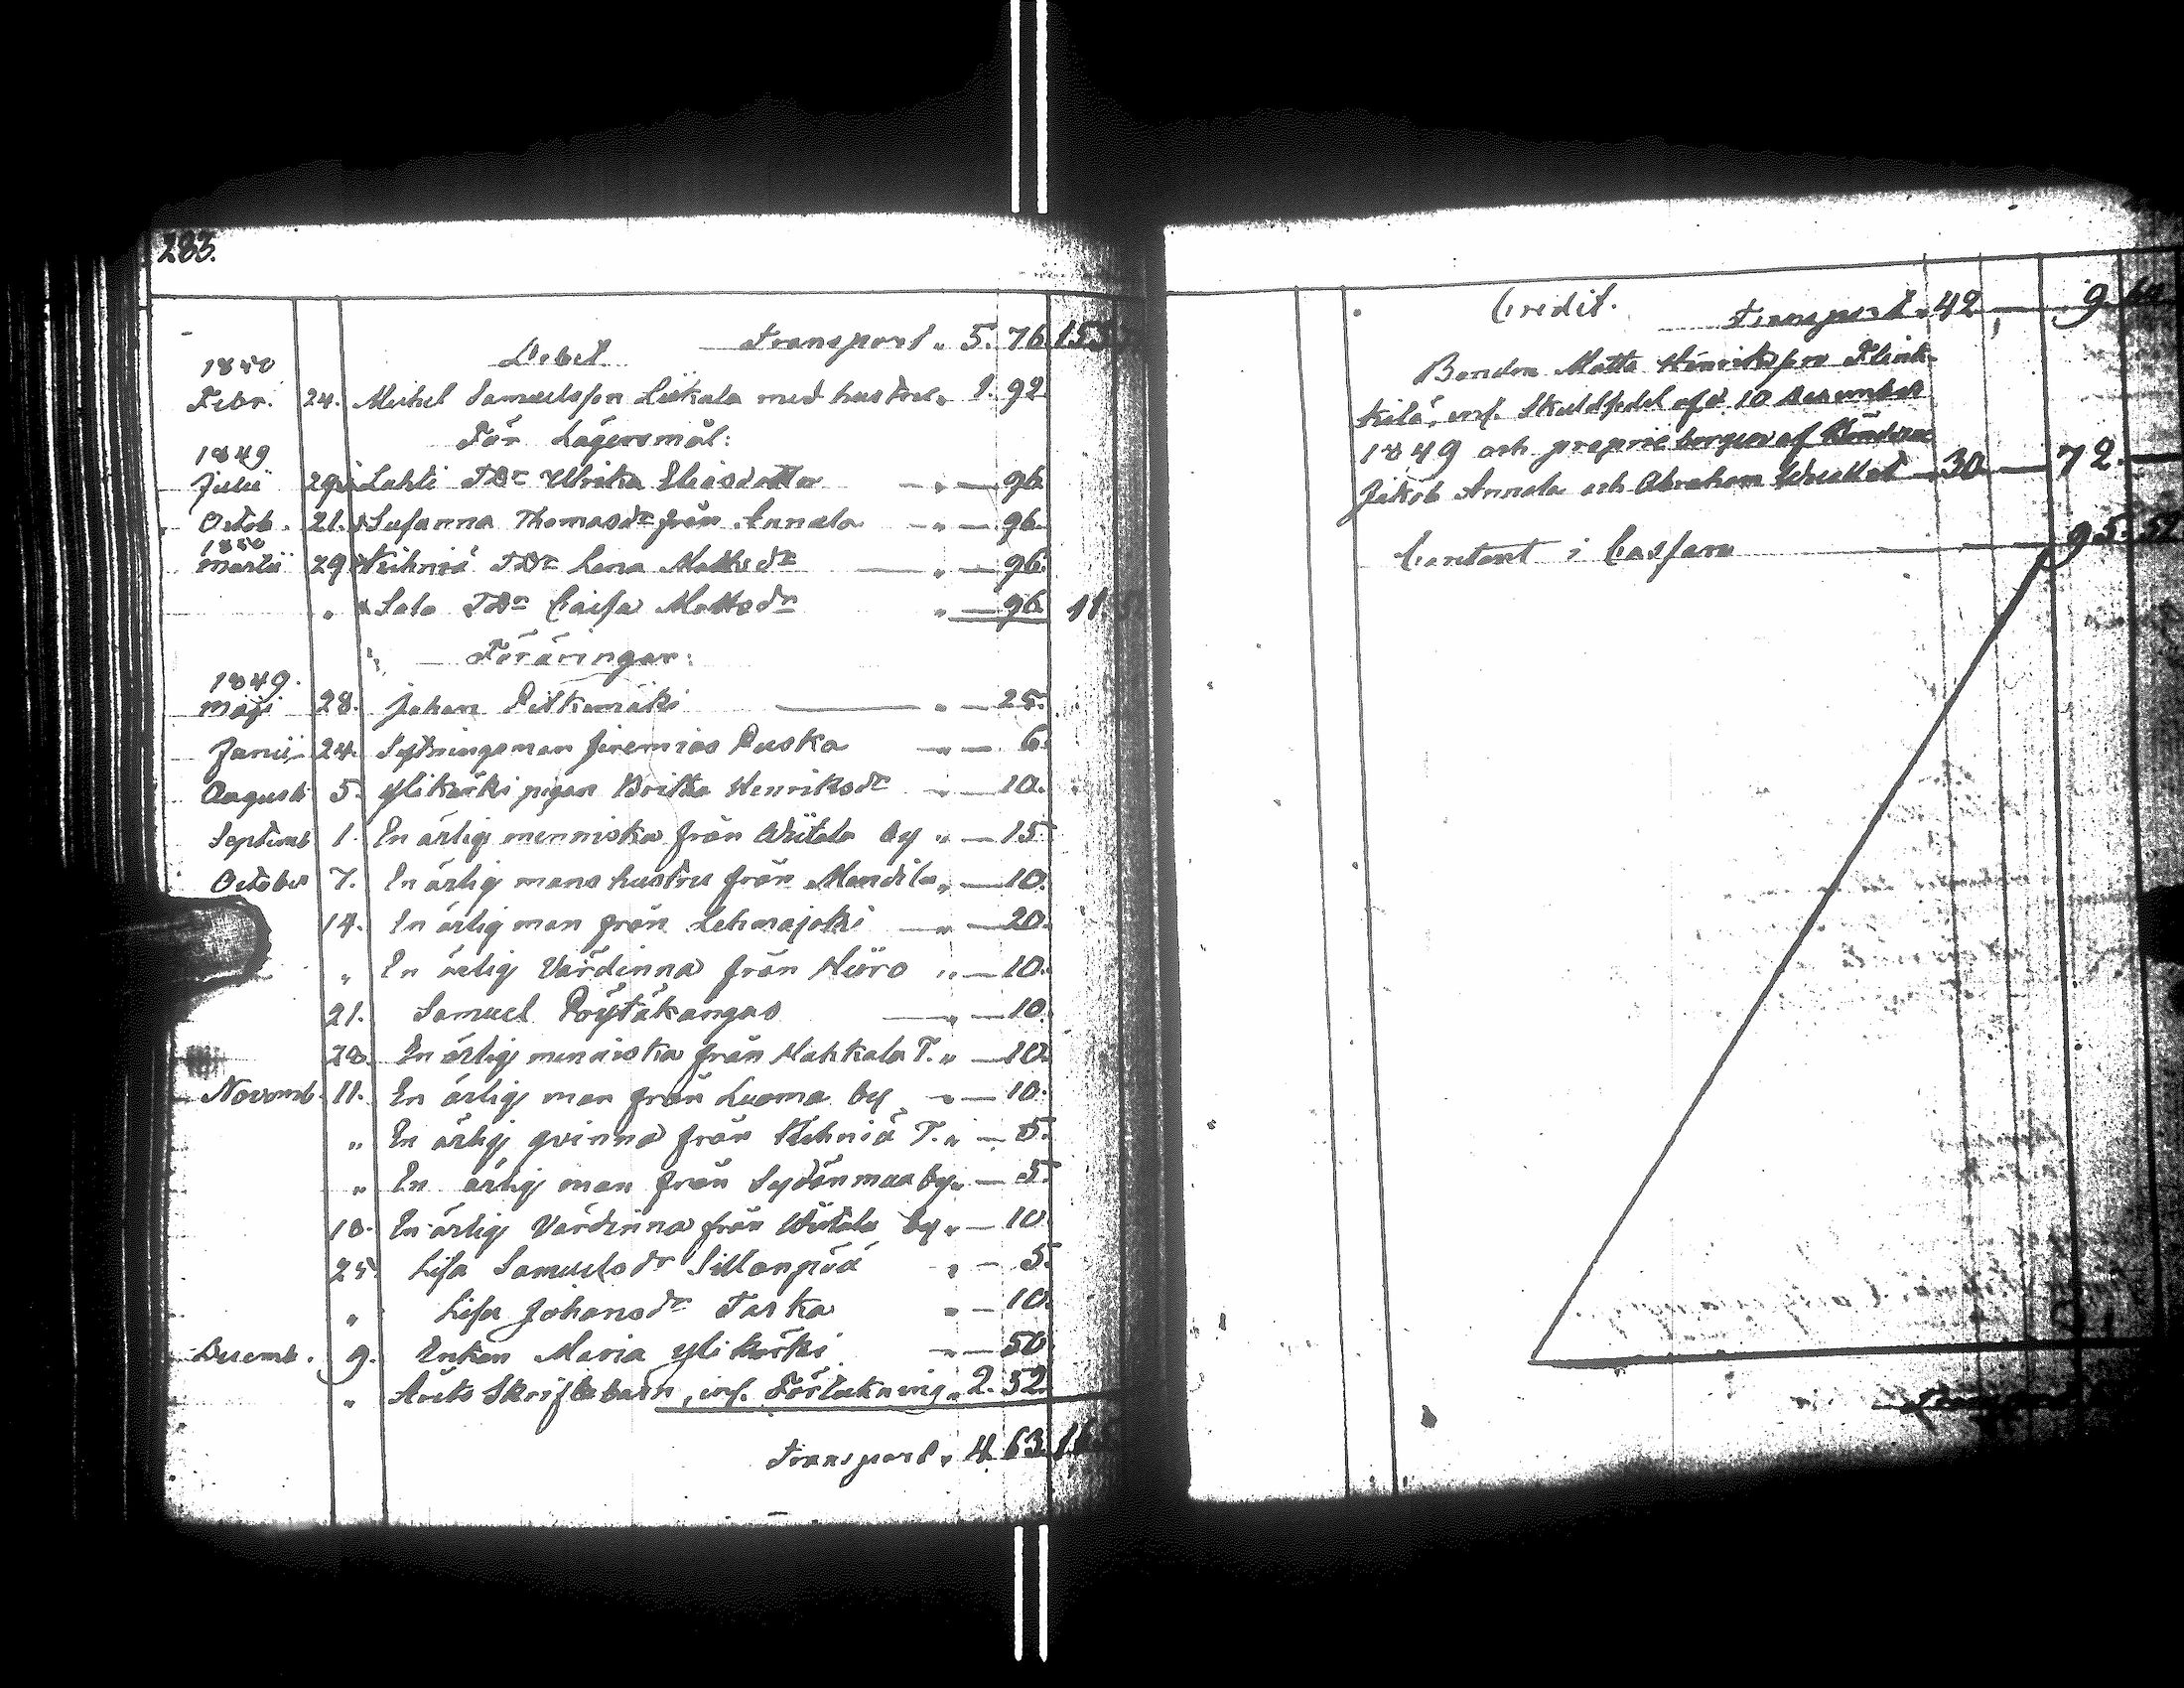 283.
Debet Transport „ 5. 76. 155
1850
Febr. 24. Michel Samuelsson Liikala med hustru „ 1. 92.
För Lägersmål:
1849
Julii 29. Lahti TDr Ulrika Eliasdotter „ — 96.
Octob. 21. Susanna Thomasdr från Annala „ — 96.
1850
Martii 29 Keihniä TDr Lena Mattsdr „ — 96.
„ Salo TDr Caisa Mattsdr „ — 96. 11.
Föräringar:
1849.
Maji 28. Johan Pitkämäki „ — 25.
Junii 24. Sytningsman Jeremias Ruska „ — 6.
Augusti 5. Ylikärki pigan Britta Henriksdr „ — 10.
Septemb 1. En ärlig menniska från Wiitala by „ — 15.
October 7. En ärlig mans hustru från Mandila „ — 10.
14. En ärlig man från Lehmajoki „ — 20.
„ En ärlig Värdinna från Hiiro „ — 10.
21. Samuel Pöytäkangas „ — 10.
28. En ärlig menniska från Hahkala T. „ — 10.
Novemb. 11. En ärlig man från Luoma by „ — 10.
„ En ärlig qvinna från Keihniä T. „ — 5.
„ En ärlig man från Sydänmaa by „ — 5.
18. En ärlig Värdinna från Wiitala by „ — 10.
25. Lisa Samuelsdr Sillanpää „ — 5.
„ Lisa Johansdr Tarka „ — 10.
Decemb. 9. Enkan Maria Ylikärki „ — 50.
„ Årets Skriftebarn, inl. Förteckning „ 2. 52.
Transport „ 4. 63. 16
Credit. Transport „ 42, — 9
Bonden Matts Henriksson Flink-
kilä, enl. Skuldsedel af d. 10 December
1849 och proprie borgen af Bönderne
Jakob Annala och Abraham — 30 — 72. —
Contant i Cassan — 95. 52
Transport